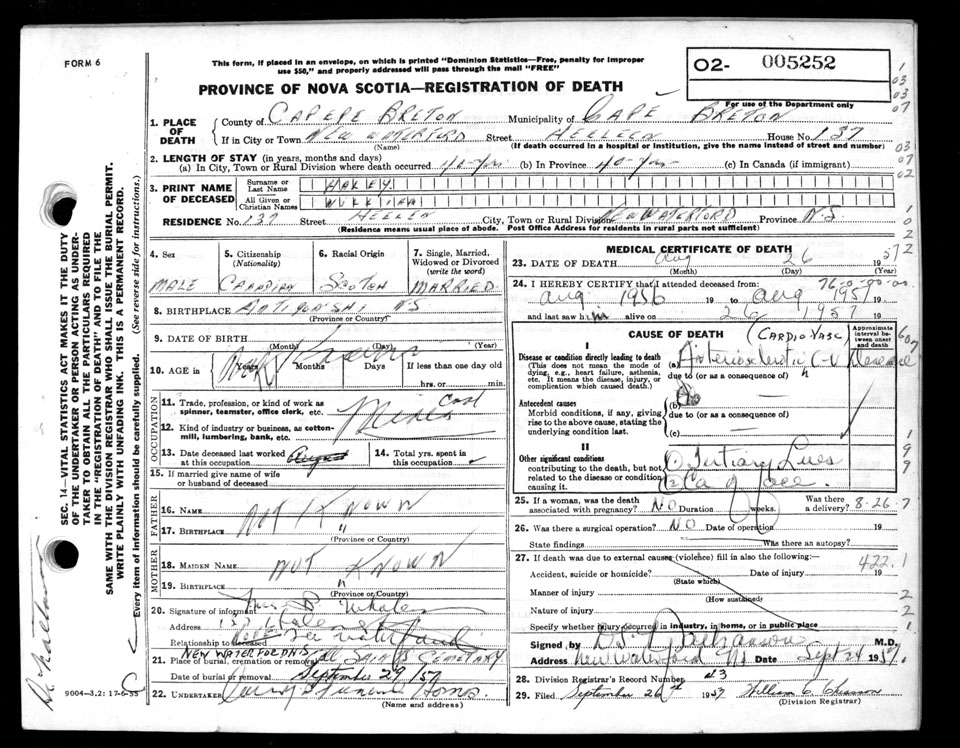 FORM 6
This form, if placed in an envelope, on which is printed "Dominion Statistics—Free, penalty for improper
use $50," and properly addressed will pass through the mail "FREE"
PROVINCE OF NOVA SCOTIA—REGISTRATION OF DEATH
02- 005252
For use of the Department only
1. PLACE OF DEATH
County of CAPEPE BRETON Municipality of CAPE BRETON
If in City or Town NEW WATERFORD Street HEELEN House No. 137
(Name) (If death occurred in a hospital or institution, give the name instead of street and number)
2. LENGTH OF STAY (in years, months and days)
(a) In City, Town or Rural Division where death occurred 40-Yrs (b) In Province 40-Yrs (c) In Canada (if immigrant)
3. PRINT NAME OF DECEASED
Surname or Last Name HALEY
All Given or Christian Names WILLIAM
RESIDENCE No. 137 Street HEELEN City, Town or Rural Division NEW WATERFORD Province N.S.
(Residence means usual place of abode. Post Office Address for residents in rural parts not sufficient)
4. Sex
MALE
5. Citizenship
(Nationality)
CANADIAN
6. Racial Origin
SCOTCH
7. Single, Married, Widowed or Divorced
(write the word)
MARRIED
8. BIRTHPLACE ANTIGONISH NS
(Province or Country)
9. DATE OF BIRTH
(Month) (Day) (Year)
10. AGE in
Years Months Days If less than one day old
hrs. or min.
OCCUPATION
11. Trade, profession, or kind of work as
spinner, teamster, office clerk, etc.
12. Kind of industry or business, as cotton-
mill, lumbering, bank, etc.
Coal
Miner
13. Date deceased last worked
at this occupation
14. Total yrs. spent in
this occupation
15. If married give name of wife
or husband of deceased
FATHER
16. NAME NOT KNOWN
17. BIRTHPLACE "
(Province or Country)
MOTHER
18. MAIDEN NAME NOT KNOWN
19. BIRTHPLACE "
(Province or Country)
20. Signature of informant
Address
Relationship to deceased
NEW WATERFORD NS
21. Place of burial, cremation or removal CEMETARY
Date of burial or removal September 29/57
22. UNDERTAKER Funeral Home
(Name and address)
MEDICAL CERTIFICATE OF DEATH
23. DATE OF DEATH Aug 26 1957
(Month) (Day) (Year)
24. I HEREBY CERTIFY that I attended deceased from:
Aug. 1956 19 to Aug 1957 19
and last saw him alive on 26 1957 19
CAUSE OF DEATH
(CARDIO VASC)
Approximate interval between onset and death
I
Disease or condition directly leading to death
(This does not mean the mode of
dying, e.g., heart failure, asthenia,
etc. It means the disease, injury, or
complication which caused death.)
(a) Arteriosclerotic C-V
due to (or as a consequence of)
Antecedent causes
Morbid conditions, if any, giving
rise to the above cause, stating the
underlying condition last.
(b)
due to (or as a consequence of)
(c)
II
Other significant conditions
contributing to the death, but not
related to the disease or condition
causing it.
① Tertiary Lues
② Ca of
25. If a woman, was the death
associated with pregnancy? NO Duration weeks. Was there
a delivery? 8-26-7
26. Was there a surgical operation? NO Date of operation 19
State findings Was there an autopsy?
27. If death was due to external causes (violence) fill in also the following:—
Accident, suicide or homicide? Date of injury 19
(State which)
422.1
Manner of injury
(How sustained)
Nature of injury
Specify whether injury occurred in industry, in home, or in public place
Signed by M.D.
Address New Waterford NS Date Sept 24 1957
28. Division Registrar's Record Number 43
29. Filed September 26th 1957 William C.
(Division Registrar)
SEC. 14—VITAL STATISTICS ACT MAKES IT THE DUTY
OF THE UNDERTAKER OR PERSON ACTING AS UNDER-
TAKER TO OBTAIN ALL THE PARTICULARS REQUIRED
IN THE "REGISTRATION OF DEATH" AND TO FILE THE
SAME WITH THE DIVISION REGISTRAR WHO SHALL ISSUE THE BURIAL PERMIT.
WRITE PLAINLY WITH UNFADING INK. THIS IS A PERMANENT RECORD.
Every item of information should be carefully supplied. (See reverse side for instructions.)
9004—3,2: 17-6-55